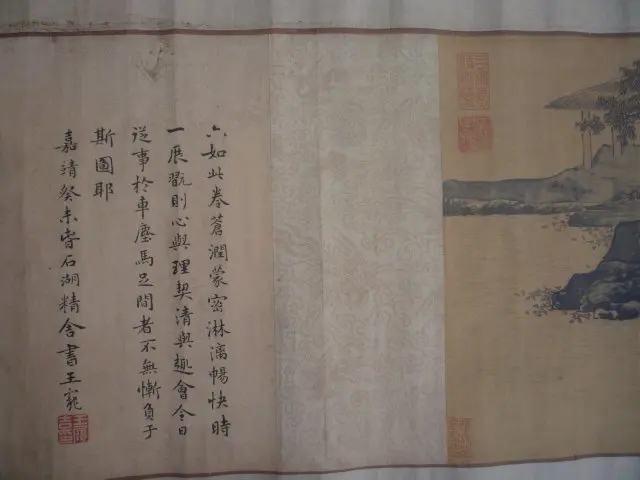 六如此卷蒼潤蒙密淋漓暢快時
一展翫則心與理契清與趣會今日
從事於車塵馬足間者不無慚負于
斯圖耶
嘉靖癸未嘗石湖精舍書王寵